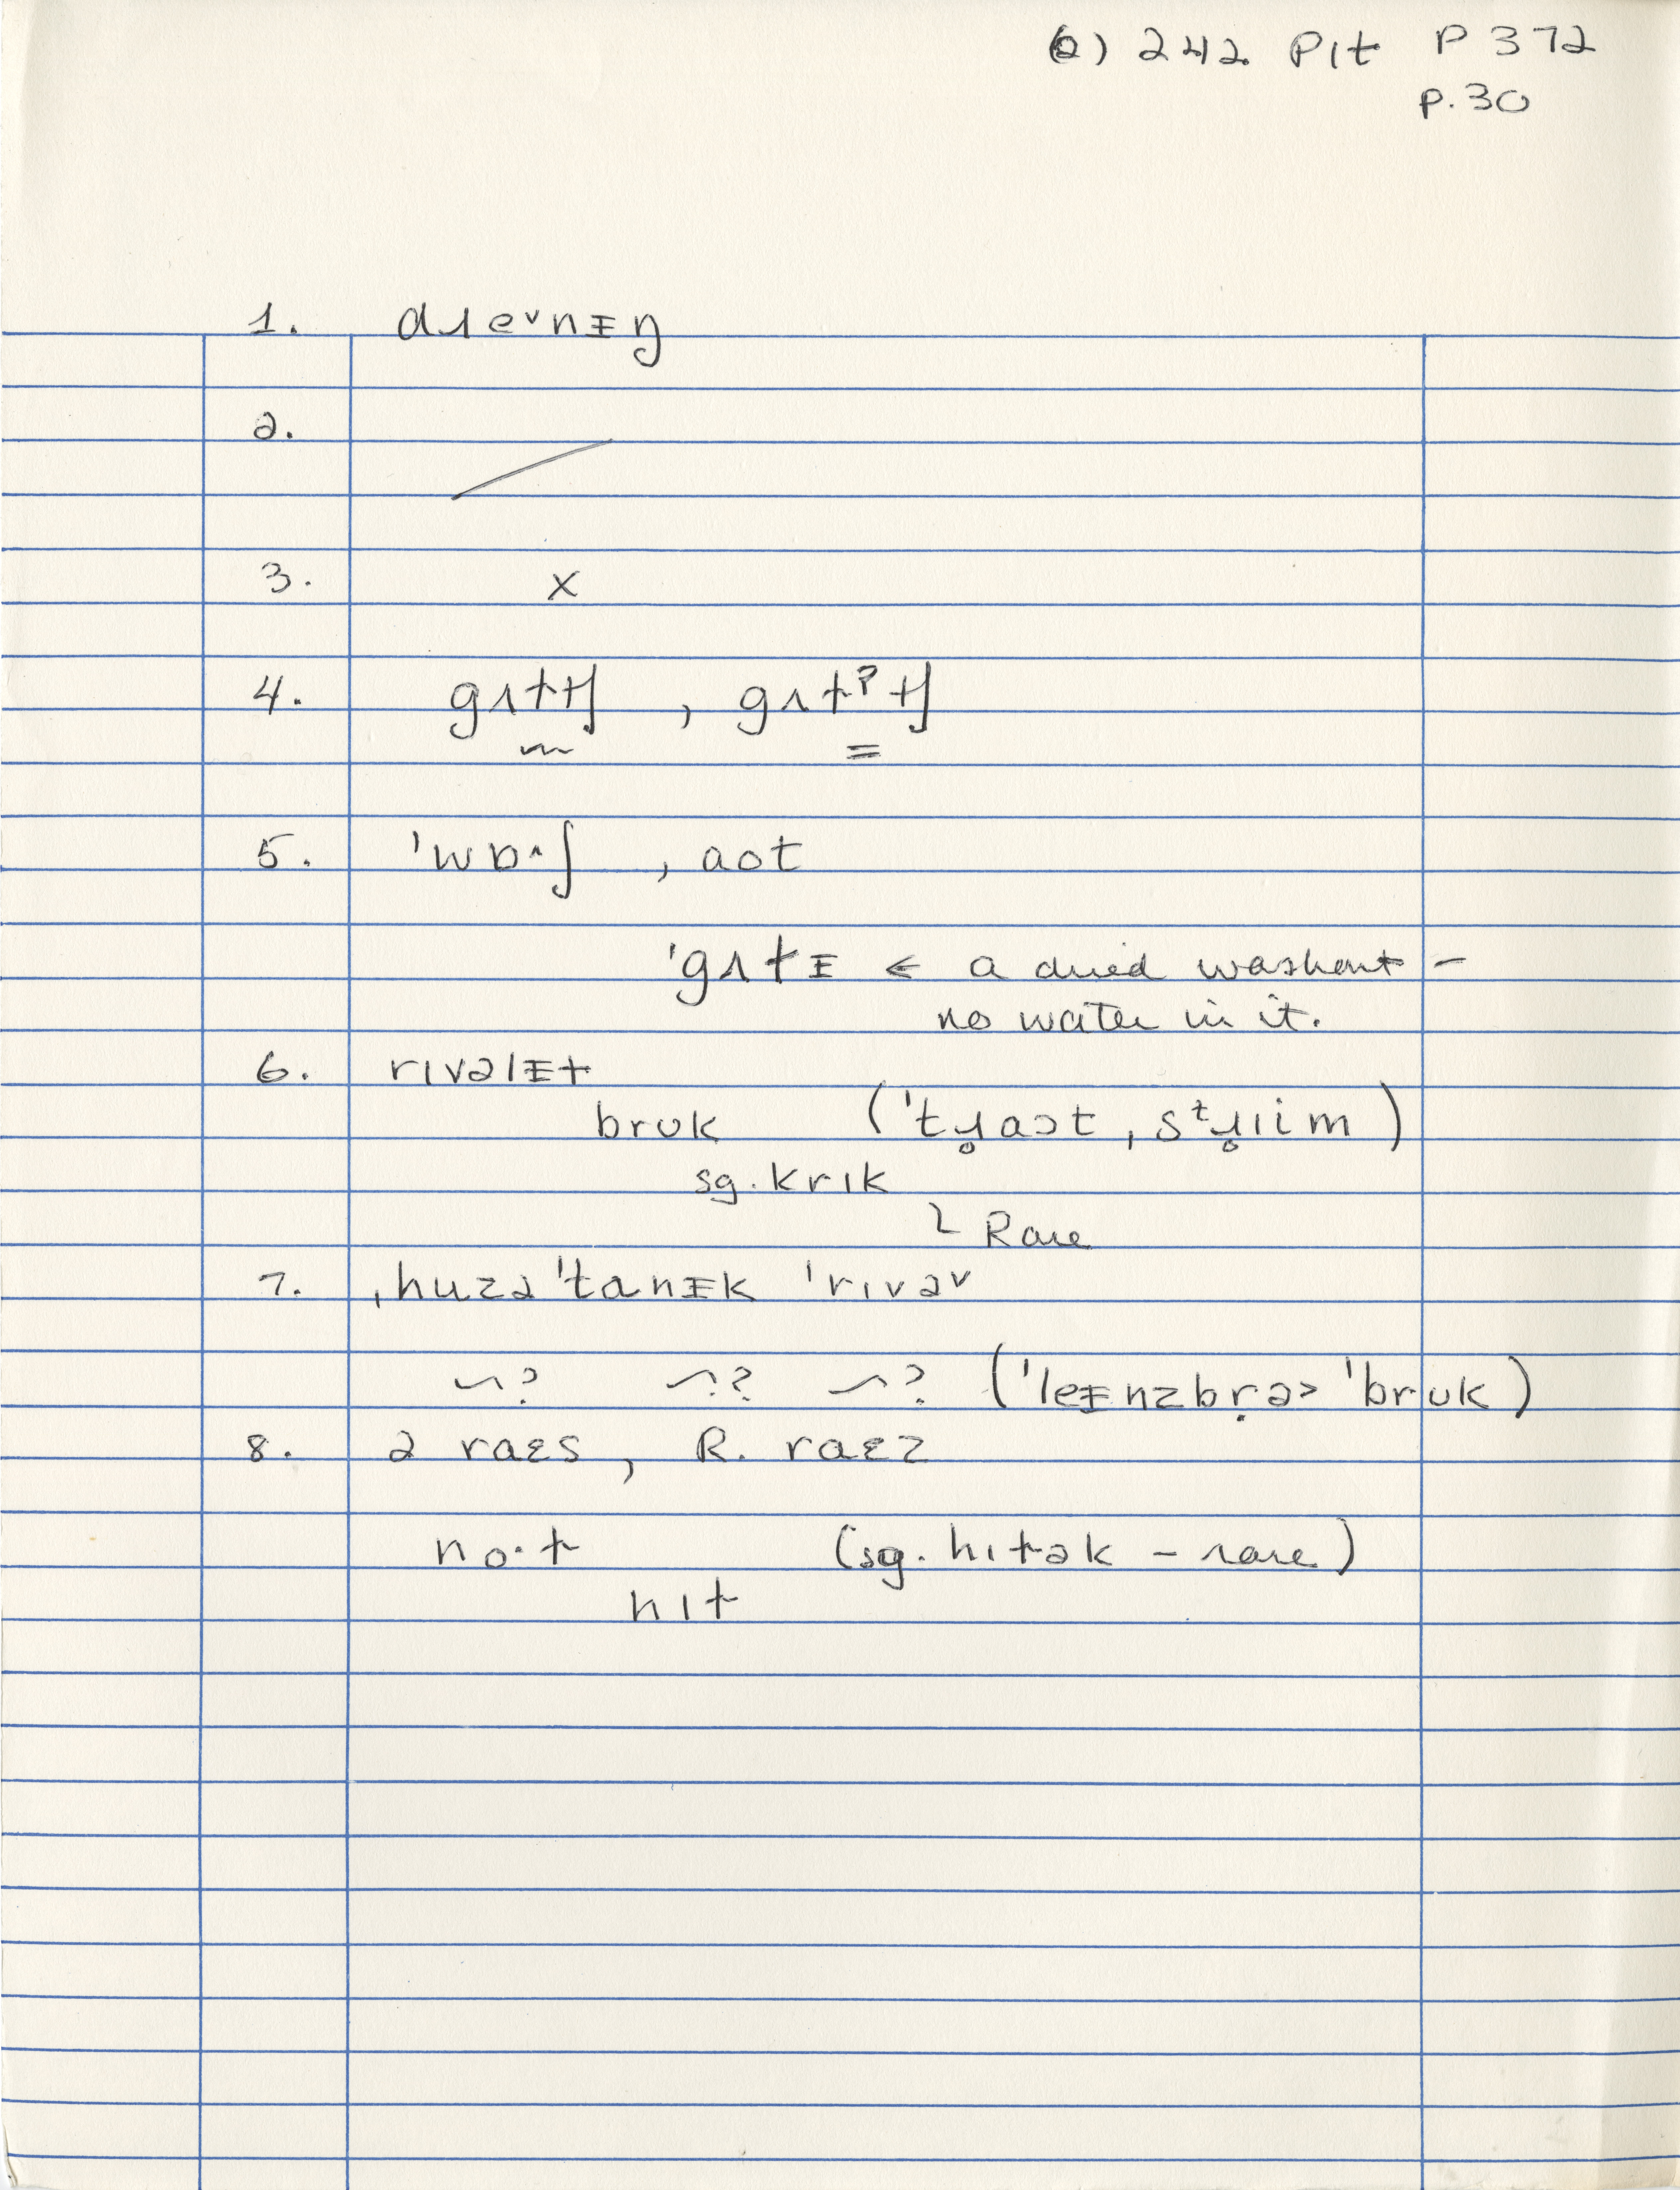 (2) 242 Pit P 372
p.30
1. dɹeᵛnᵻŋ
2.
3. x
4. gʌtɫʃ , gʌtˀɫʃ
5. ˈwɒ^ʃ , aot
ˈgʌtᵻ ← a dried washout –
no water in it.
6. rɪvəlᵻt
bruk (ˈtɹ̥aɔt, sᵗɹ̥iim)
sg. krik
Rare
7. ˌhuzəˈtanᵻk ˈrɪvəv
~? ~? ~? (ˈleᵻnzbṛə> ˈbruk)
8. ə raɛs, R. raɛz
no·t (sg. hɪtək – rare)
hɪt